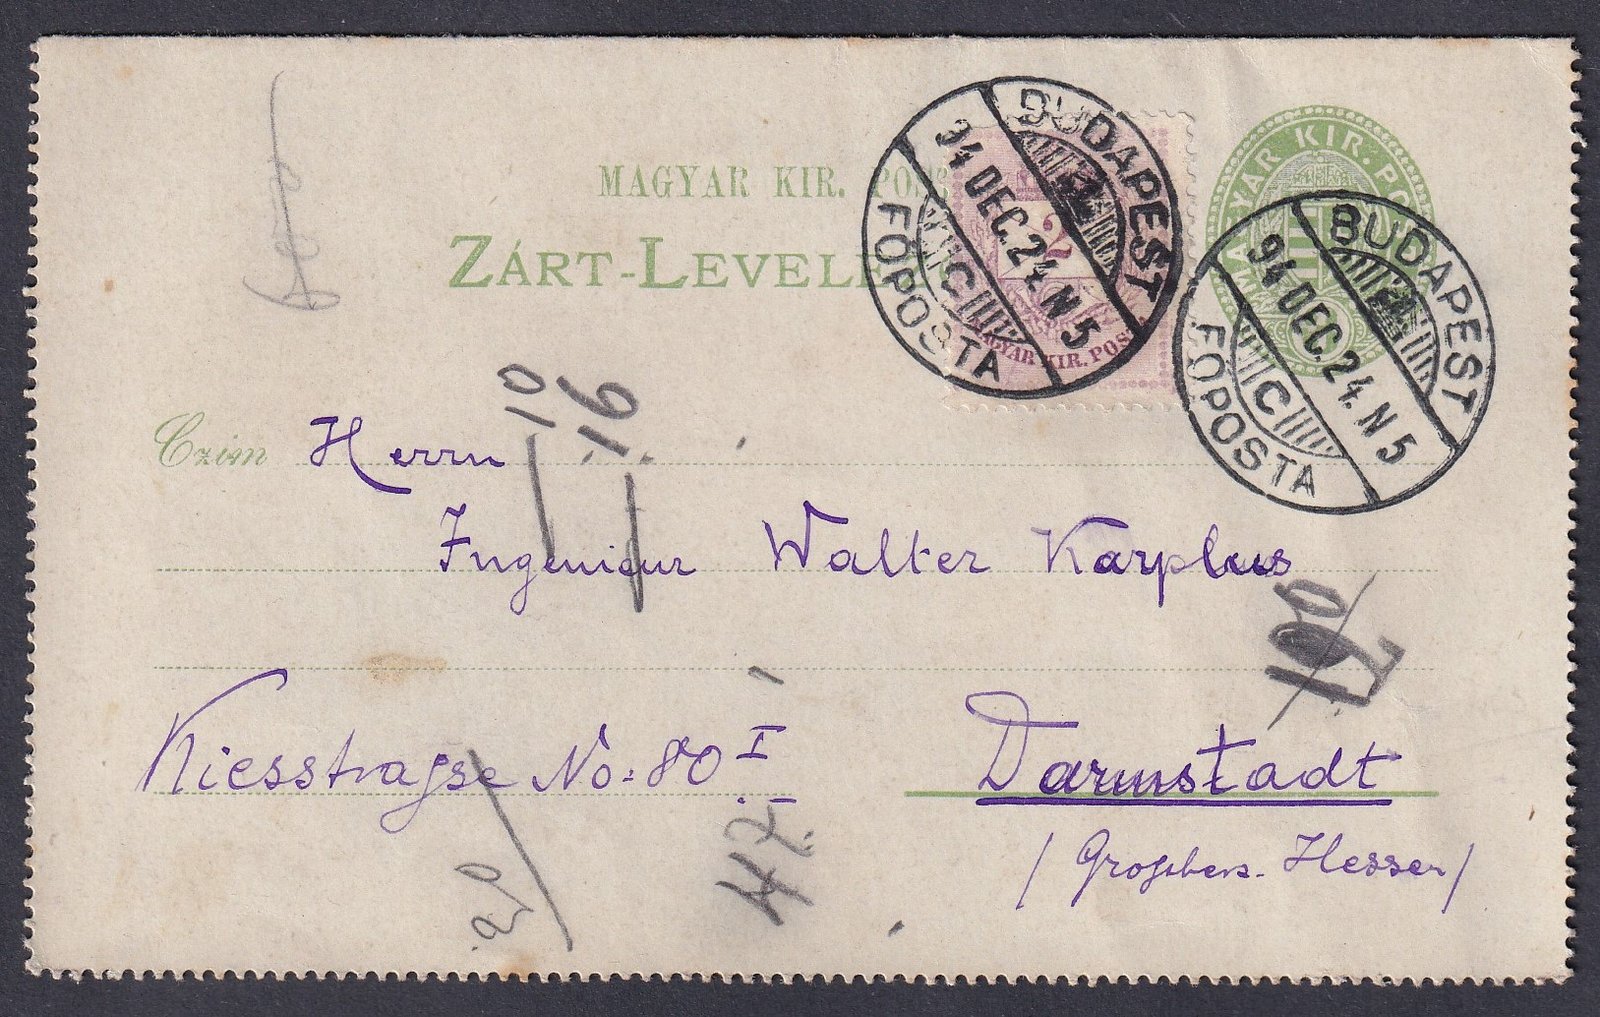 MAGYAR KIR. POSTA
ZÁRT-LEVELE
BUDAPEST
94 DEC. 24. N 5
C
FŐPOSTA
2
MAGYAR KIR. POSTA
MAGYAR KIR. POSTA
BUDAPEST
94 DEC. 24. N 5
C
FŐPOSTA
10
16
Czím Herrn
Ingenieur Walter Karplus
Kiesstraße No: 80 I
Darmstadt
/ Hessen /
47.
20